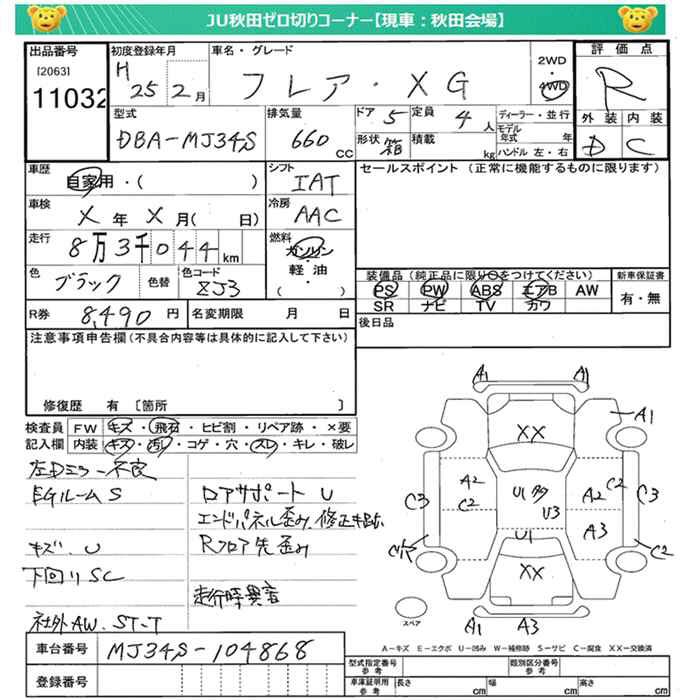 JU秋田ゼロ切りコーナー【現車：秋田会場】
出品番号
[2063]
11032
初度登録年月
H 25 2月
車名・グレード
フレア・XG
2WD
4WD
評価点
R
外装 内装
D C
型式
DBA-MJ34S
排気量
660 CC
ドア 5
定員 4人
形状 箱
積載 kg
ディーラー・並行
モデル年式 年
ハンドル 左・右
車歴
自家用・( )
シフト
IAT
セールスポイント (正常に機能するものに限ります)
車検
X年 X月( 日)
冷房
AAC
走行
8万3千044km
燃料
ガソリン
軽・油
・
( )
色
ブラック
色替
色コード
ZJ3
装備品(純正品に限り○をつけてください)
PS PW ABS エアB AW
SR ナビ TV カワ
新車保証書
有・無
R券 8,490円
名変期限 月 日
後日品
注意事項申告欄(不具合内容等は具体的に記入して下さい)
修復歴 有 〔箇所 〕
検査員記入欄
FW キズ・飛石・ヒビ割・リペア跡・×要
内装 キズ・汚レ・コゲ・穴・スレ・キレ・破レ
左Dミラー不良
EGルームS
キズ、U
下回りSC
社外AW、ST-T
ロアサポートU
エンドパネル歪み、修正キ跡
Rフロア先歪み
走行時異音
A1 A1
A1
XX
A2
C2
C3
U1
U3
C2
A2
C3
A3
U1
C2
XX
A1 A3
スペア
A－キズ E－エクボ U－凹み W－補修跡 S－サビ C－腐食 XX－交換済
車台番号
MJ34S-104868
登録番号
型式指定番号
参考
類別区分番号
参考
車庫証明用
参考
長さ cm 幅 cm 高さ cm